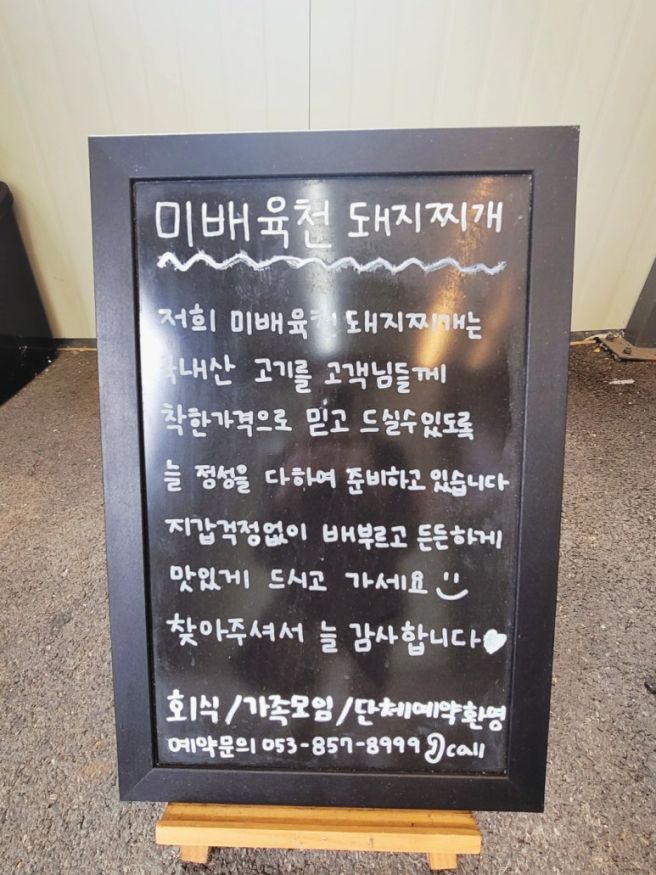 미배육천 돼지찌개
저희 미배육천 돼지찌개는
국내산 고기를 고객님들께
착한가격으로 믿고 드실수있도록
늘 정성을 다하여 준비하고 있습니다
지갑걱정없이 배부르고 든든하게
맛있게 드시고 가세요
찾아주셔서 늘 감사합니다
회식/가족모임/단체예약환영
예약문의 053-857-8999 call